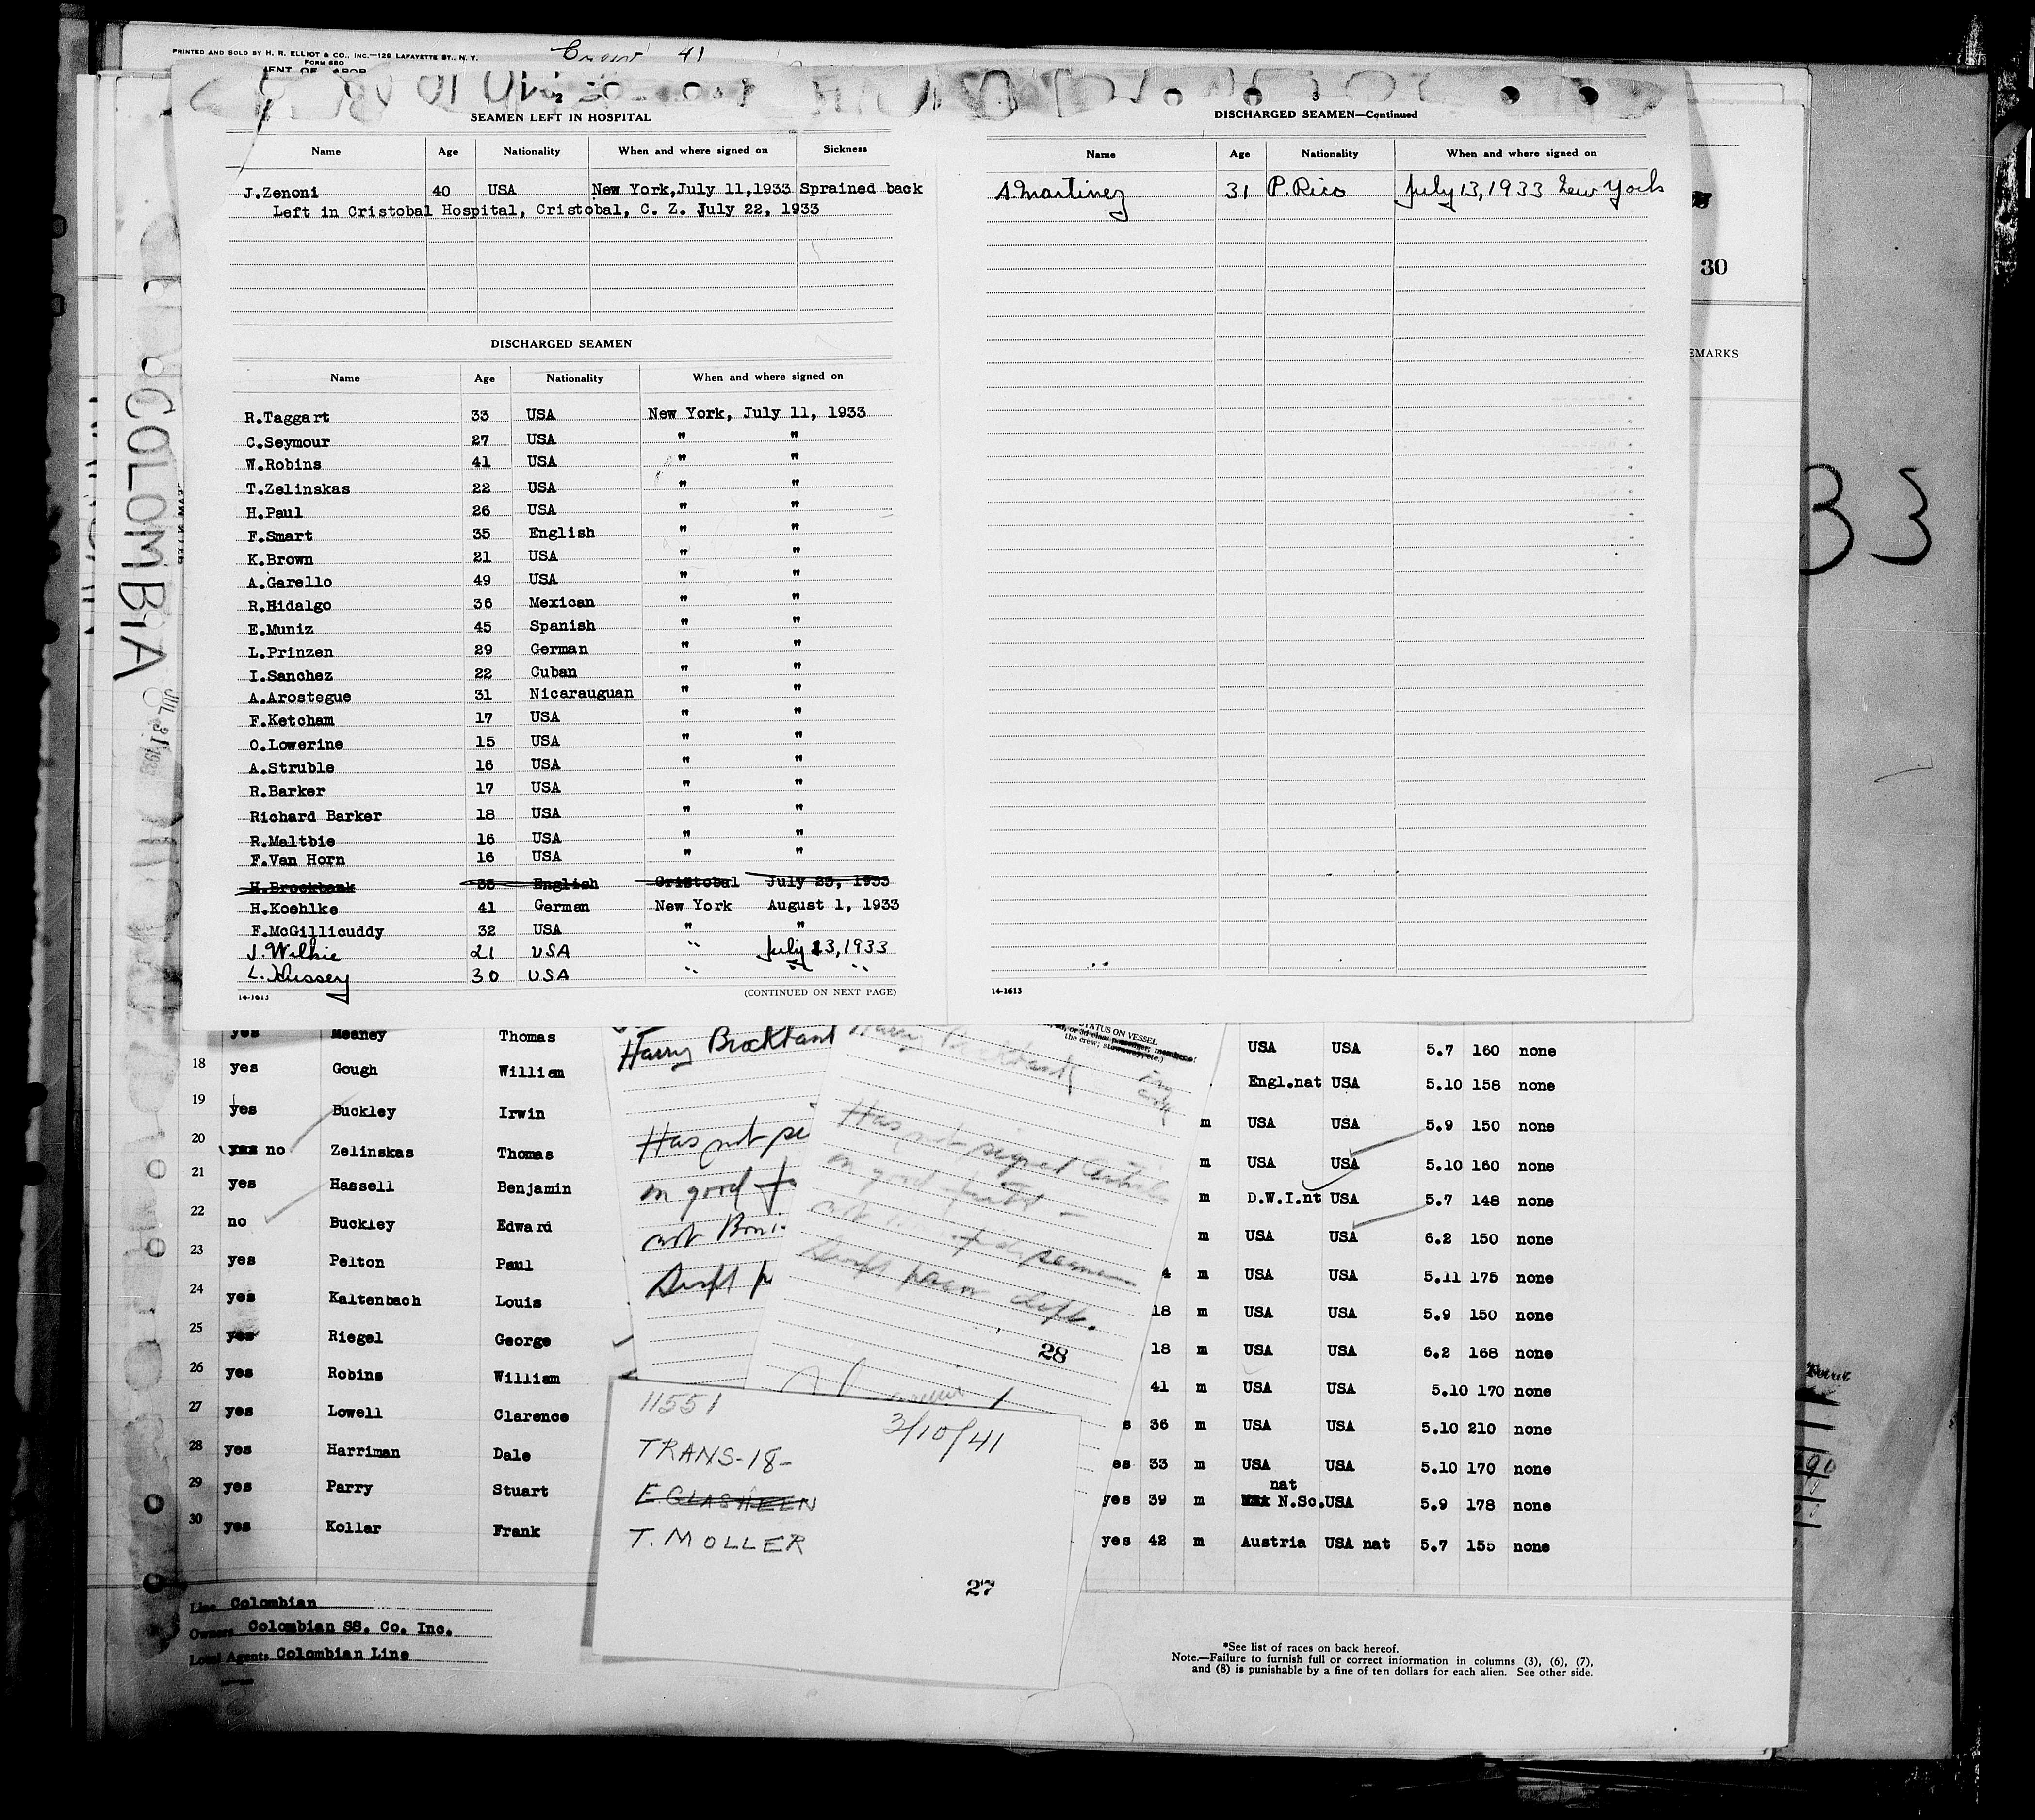 PRINTED AND SOLD BY H. R. ELLIOT & CO., INC.—129 LAFAYETTE ST., N. Y.
FORM 680
Crew 41
SEAMEN LEFT IN HOSPITAL
Name Age Nationality When and where signed on Sickness
J.Zenoni 40 USA New York,July 11,1933 Sprained back
Left in Cristobal Hospital, Cristobal, C. Z. July 22, 1933
DISCHARGED SEAMEN
Name Age Nationality When and where signed on
R.Taggart 33 USA New York, July 11, 1933
C.Seymour 27 USA " "
W.Robins 41 USA " "
T.Zelinskas 22 USA " "
H.Paul 26 USA " "
F.Smart 35 English " "
K.Brown 21 USA " "
A.Garello 49 USA " "
R.Hidalgo 36 Mexican " "
E.Muniz 45 Spanish " "
L.Prinzen 29 German " "
I.Sanchez 22 Cuban " "
A.Arostegue 31 Nicarauguan " "
F.Ketcham 17 USA " "
O.Lowerine 15 USA " "
A.Struble 16 USA " "
R.Barker 17 USA " "
Richard Barker 18 USA " "
R.Maltbie 16 USA " "
F.Van Horn 16 USA " "
H.Brockbank 35 English Cristobal July 23, 1933
H.Koehlke 41 German New York August 1, 1933
F.McGillicuddy 32 USA " "
J. Wilkie 21 USA " July 13, 1933
L. Hussey 30 USA " " "
14-1613 (CONTINUED ON NEXT PAGE)
DISCHARGED SEAMEN—Continued
Name Age Nationality When and where signed on
A. Martinez 31 P. Rico July 13, 1933 New York
14-1613
30
EMARKS
COLOMBIA
JUL 31 1933
33
yes Meaney Thomas USA USA 5.7 160 none
18 yes Gough William Engl.nat USA 5.10 158 none
19 yes Buckley Irwin m USA USA 5.9 150 none
20 yes no Zelinskas Thomas m USA USA 5.10 160 none
21 yes Hassell Benjamin m D.W.I.nt USA 5.7 148 none
22 no Buckley Edward m USA USA 6.2 150 none
23 yes Pelton Paul 4 m USA USA 5.11 175 none
24 yes Kaltenbach Louis 18 m USA USA 5.9 150 none
25 yes Riegel George 18 m USA USA 6.2 168 none
26 yes Robins William 41 m USA USA 5.10 170 none
27 yes Lowell Clarence s 36 m USA USA 5.10 210 none
28 yes Harriman Dale es 33 m USA USA 5.10 170 none
nat
29 yes Parry Stuart yes 39 m N.Sc.USA 5.9 178 none
30 yes Kollar Frank yes 42 m Austria USA nat 5.7 155 none
Line Colombian
Owners Colombian SS. Co. Inc.
Local Agents Colombian Line
Harry Brockbank
Has not si
on good
not Bon
STATUS ON VESSEL
or 3d class passenger, member of
the crew, stowaway, etc.)
Harry Brockbank
Has not signed
on good
seaman
28
11551
3/10/41
TRANS-18-
E GLASHEEN
T. MOLLER
27
*See list of races on back hereof.
Note.—Failure to furnish full or correct information in columns (3), (6), (7),
and (8) is punishable by a fine of ten dollars for each alien. See other side.